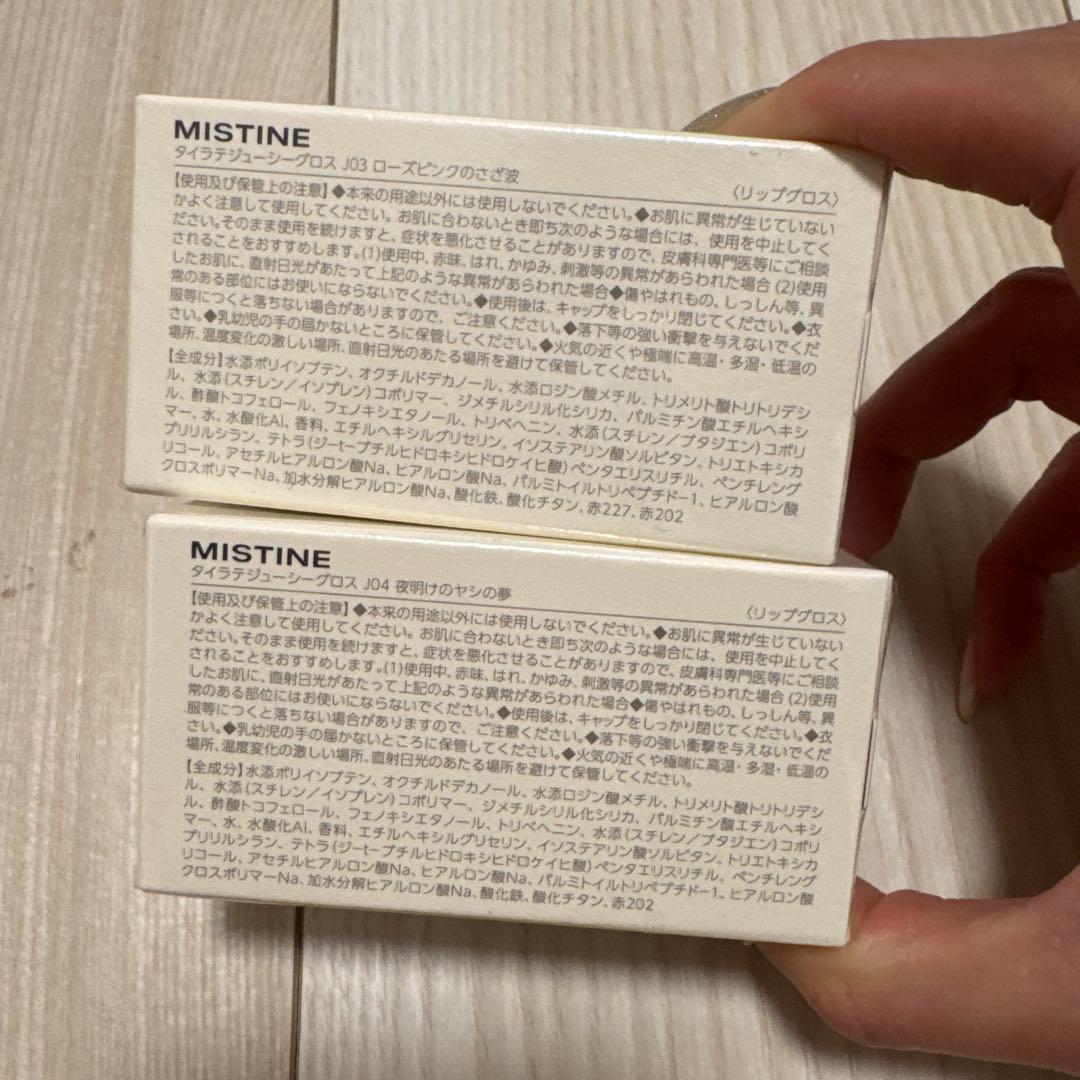 MISTINE
タイラテジューシーグロス J03 ローズピンクのさざ波
〈リップグロス〉
【使用及び保管上の注意】◆本来の用途以外には使用しないでください。◆お肌に異常が生じていない
かよく注意して使用してください。お肌に合わないとき即ち次のような場合には、使用を中止してく
ださい。そのまま使用を続けますと、症状を悪化させることがありますので、皮膚科専門医等にご相談
されることをおすすめします。(1)使用中、赤味、はれ、かゆみ、刺激等の異常があらわれた場合 (2)使用
したお肌に、直射日光があたって上記のような異常があらわれた場合◆傷やはれもの、しっしん等、異
常のある部位にはお使いにならないでください。◆使用後は、キャップをしっかり閉じてください。◆衣
服等につくと落ちない場合がありますので、ご注意ください。◆落下等の強い衝撃を与えないでくだ
さい。◆乳幼児の手の届かないところに保管してください。◆火気の近くや極端に高温・多湿・低温の
場所、温度変化の激しい場所、直射日光のあたる場所を避けて保管してください。
【全成分】水添ポリイソブテン、オクチルドデカノール、水添ロジン酸メチル、トリメリト酸トリトリデシ
ル、水添(スチレン/イソプレン)コポリマー、ジメチルシリル化シリカ、パルミチン酸エチルヘキシ
ル、酢酸トコフェロール、フェノキシエタノール、トリベヘニン、水添(スチレン/ブタジエン)コポリ
マー、水、水酸化Al、香料、エチルヘキシルグリセリン、イソステアリン酸ソルビタン、トリエトキシカ
プリリルシラン、テトラ(ジ-t-ブチルヒドロキシヒドロケイヒ酸)ペンタエリスリチル、ペンチレング
リコール、アセチルヒアルロン酸Na、ヒアルロン酸Na、パルミトイルトリペプチド-1、ヒアルロン酸
クロスポリマーNa、加水分解ヒアルロン酸Na、酸化鉄、酸化チタン、赤227、赤202
MISTINE
タイラテジューシーグロス J04 夜明けのヤシの夢
〈リップグロス〉
【使用及び保管上の注意】◆本来の用途以外には使用しないでください。◆お肌に異常が生じていない
かよく注意して使用してください。お肌に合わないとき即ち次のような場合には、使用を中止してく
ださい。そのまま使用を続けますと、症状を悪化させることがありますので、皮膚科専門医等にご相談
されることをおすすめします。(1)使用中、赤味、はれ、かゆみ、刺激等の異常があらわれた場合 (2)使用
したお肌に、直射日光があたって上記のような異常があらわれた場合◆傷やはれもの、しっしん等、異
常のある部位にはお使いにならないでください。◆使用後は、キャップをしっかり閉じてください。◆衣
服等につくと落ちない場合がありますので、ご注意ください。◆落下等の強い衝撃を与えないでくだ
さい。◆乳幼児の手の届かないところに保管してください。◆火気の近くや極端に高温・多湿・低温の
場所、温度変化の激しい場所、直射日光のあたる場所を避けて保管してください。
【全成分】水添ポリイソブテン、オクチルドデカノール、水添ロジン酸メチル、トリメリト酸トリトリデシ
ル、水添(スチレン/イソプレン)コポリマー、ジメチルシリル化シリカ、パルミチン酸エチルヘキシ
ル、酢酸トコフェロール、フェノキシエタノール、トリベヘニン、水添(スチレン/ブタジエン)コポリ
マー、水、水酸化Al、香料、エチルヘキシルグリセリン、イソステアリン酸ソルビタン、トリエトキシカ
プリリルシラン、テトラ(ジ-t-ブチルヒドロキシヒドロケイヒ酸)ペンタエリスリチル、ペンチレング
リコール、アセチルヒアルロン酸Na、ヒアルロン酸Na、パルミトイルトリペプチド-1、ヒアルロン酸
クロスポリマーNa、加水分解ヒアルロン酸Na、酸化鉄、酸化チタン、赤202